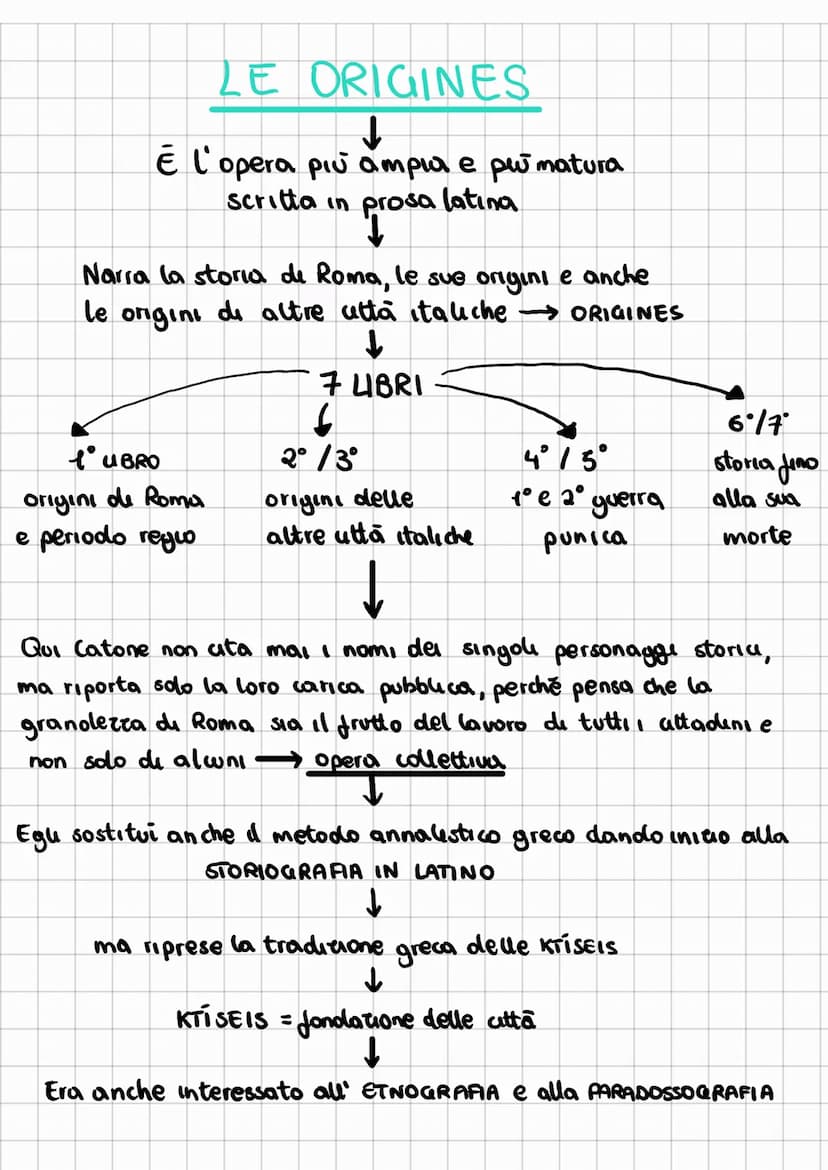 LE ORIGINES
↓
È l'opera più ampia e più matura
scritta in prosa latina
↓
Narra la storia di Roma, le sue origini e anche
le origini di altre città italiche → ORIGINES
↓
7 LIBRI
1° LIBRO
origini di Roma
e periodo regio
2° / 3°
origini delle
altre città italiche
4° / 5°
1° e 2° guerra
punica
6°/7°
storia fino
alla sua
morte
↓
Qui Catone non cita mai i nomi dei singoli personaggi storici,
ma riporta solo la loro carica pubblica, perché pensa che la
grandezza di Roma sia il frutto del lavoro di tutti i cittadini e
non solo di alcuni → opera collettiva
↓
Egli sostituì anche il metodo annalistico greco dando inizio alla
STORIOGRAFIA IN LATINO
↓
ma riprese la tradizione greca delle KTÍSEIS
↓
KTÍSEIS = fondazione delle città
↓
Era anche interessato all' ETNOGRAFIA e alla PARADOSSOGRAFIA